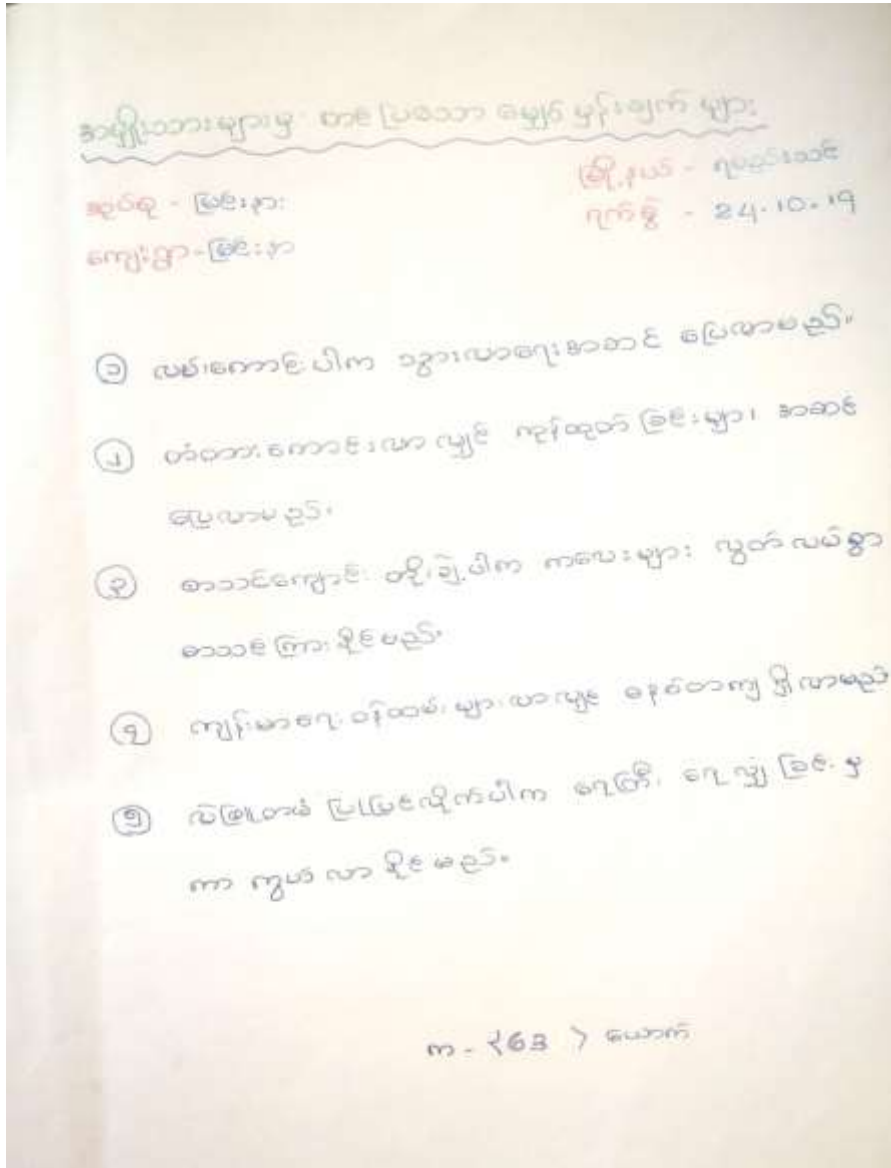 အမျိုးသားများမှ တင်ပြသော မျှော်မှန်းချက် များ
အုပ်စု - မြင်းနား
မြို့နယ် - ရမည်းသင်း
ကျေးရွာ - မြင်းနား
ရက်စွဲ - 24.10.19
၁ လမ်းကောင်းပါက သွားလာရေးအဆင် ပြေလာမည်။
၂ တံတားကောင်းလာလျှင် ကုန်ထုတ်ခြင်းများ အဆင်
ပြေလာမည်။
၃ စာသင်ကျောင်း တိုးချဲ့ပါက ကလေးများ လွတ်လပ်စွာ
စာသင်ကြားနိုင်မည်။
၄ ကျန်းမာရေးဝန်ထမ်းများလာလျှင် စနစ်တကျ ရှိလာမည်
၅ ပြုပြင်လိုက်ပါက ရေကြီး ရေလျှံခြင်းမှ
ကာကွယ်လာနိုင်မည်။
ယောက်